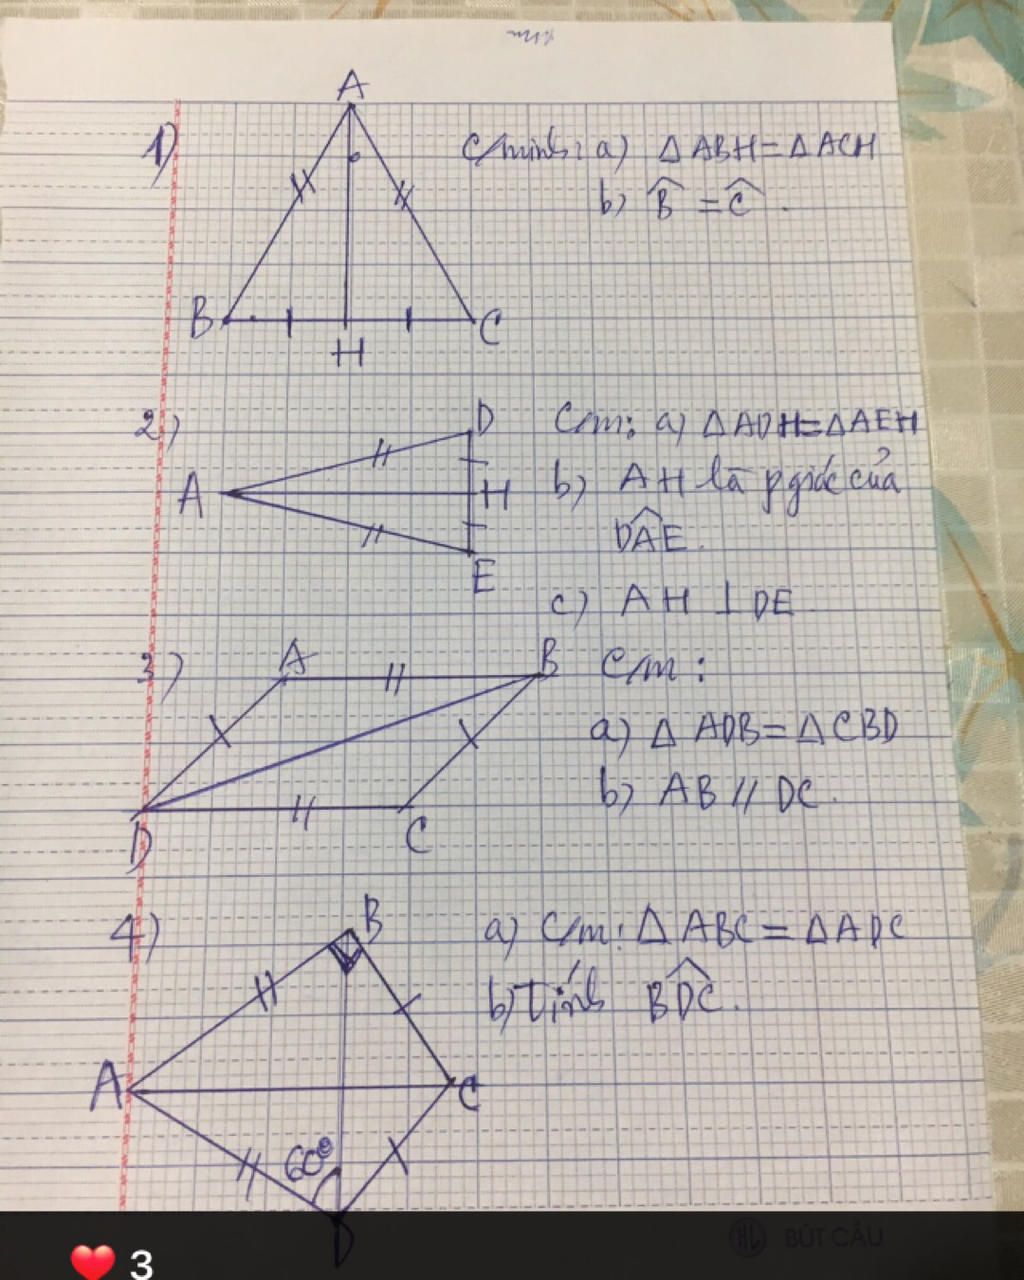 1)
A
B
H
C
C/minh: a) Δ ABH = Δ ACH
b) B̂ = Ĉ .
2)
A
D
H
E
C/m: a) Δ ADH = Δ AEH
b) AH là pgiác của
DÂE.
c) AH ⊥ DE
3)
A
B
D
C
C/m :
a) Δ ADB = Δ CBD
b) AB // DC.
4)
B
A
C
60°
D
a) C/m: Δ ABC = Δ ADC
b) Tính BD̂C.
BÚT CẦU
3